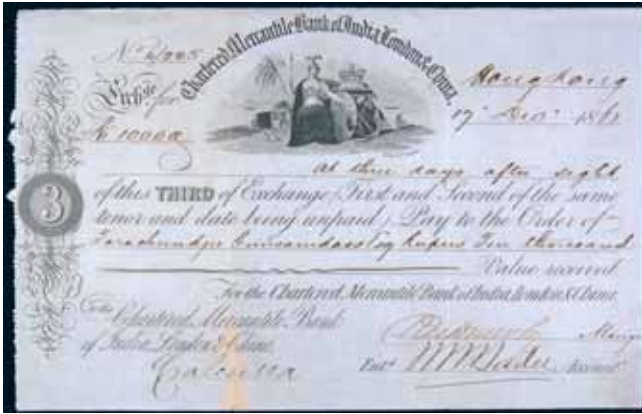 Chartered Mercantile Bank of India, London & China,
No
Exche for
Hong Kong
17
At three days after sight
3
of this THIRD of Exchange (First and Second of the same
tenor and date being unpaid) Pay to the Order of
Rupees Ten thousand
Value received
For the Chartered Mercantile Bank of India, London & China.
To the
Chartered Mercantile Bank
of India London & China.
Calcutta
Entd
Accountt